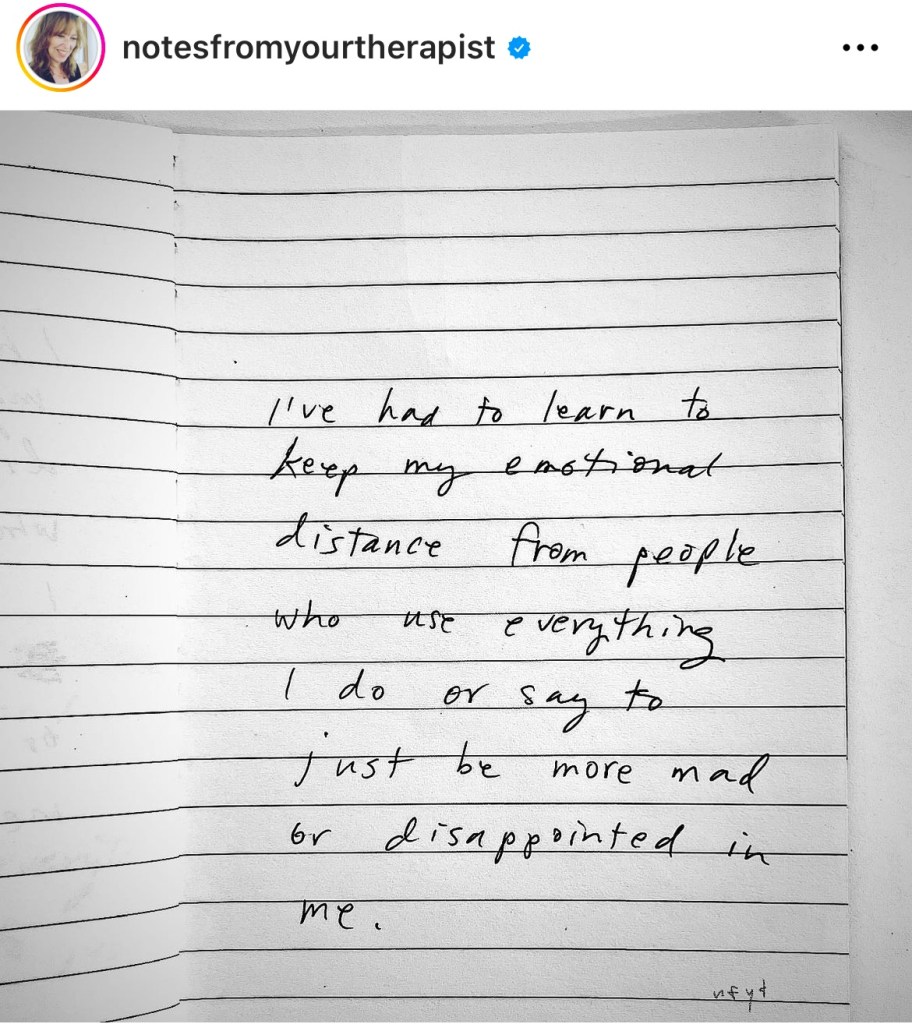 notesfromyourtherapist
I've had to learn to
keep my emotional
distance from people
who use everything
I do or say to
just be more mad
or disappointed in
me.
nfyt